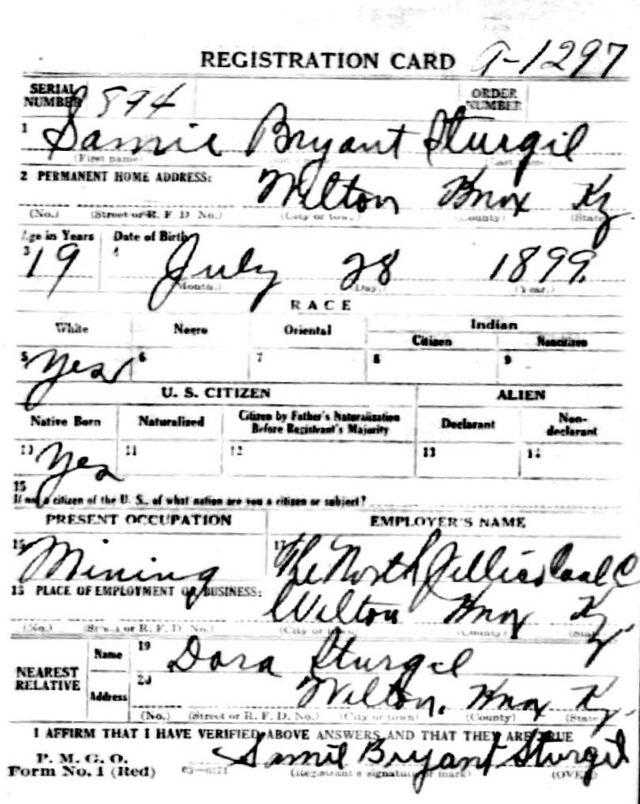 REGISTRATION CARD A-1297
SERIAL NUMBER 894 ORDER NUMBER
1 Samie Bryant Sturgil
(First name) (Last name)
2 PERMANENT HOME ADDRESS: Wilton Knox Ky
(No.) (Street or R. F. D No.) (City or town) (County) (State)
Age in Years Date of Birth
3 19 4 July 28 1899.
(Month.) (Day.) (Year.)
RACE
White Negro Oriental Indian
Citizen Noncitizen
5 Yes 6 7 8 9
U. S. CITIZEN ALIEN
Native Born Naturalized Citizen by Father's Naturalization Before Registrant's Majority Declarant Non-declarant
10 Yes 11 12 13 14
15
If not a citizen of the U. S., of what nation are you a citizen or subject?
PRESENT OCCUPATION EMPLOYER'S NAME
16 Mining 17 The North Jellico Coal C
18 PLACE OF EMPLOYMENT OR BUSINESS: Wilton Knox Ky.
(No.) (Street or R. F. D No.) (City or town) (County) (State)
NEAREST RELATIVE
Name 19 Dora Sturgil
Address 20 Wilton, Knox Ky.
(No.) (Street or R. F. D No.) (City or town) (County) (State)
I AFFIRM THAT I HAVE VERIFIED ABOVE ANSWERS AND THAT THEY ARE TRUE
P. M. G. O.
Form No. 1 (Red) Samie Bryant Sturgil
(Registrant's signature or mark) (OVER)